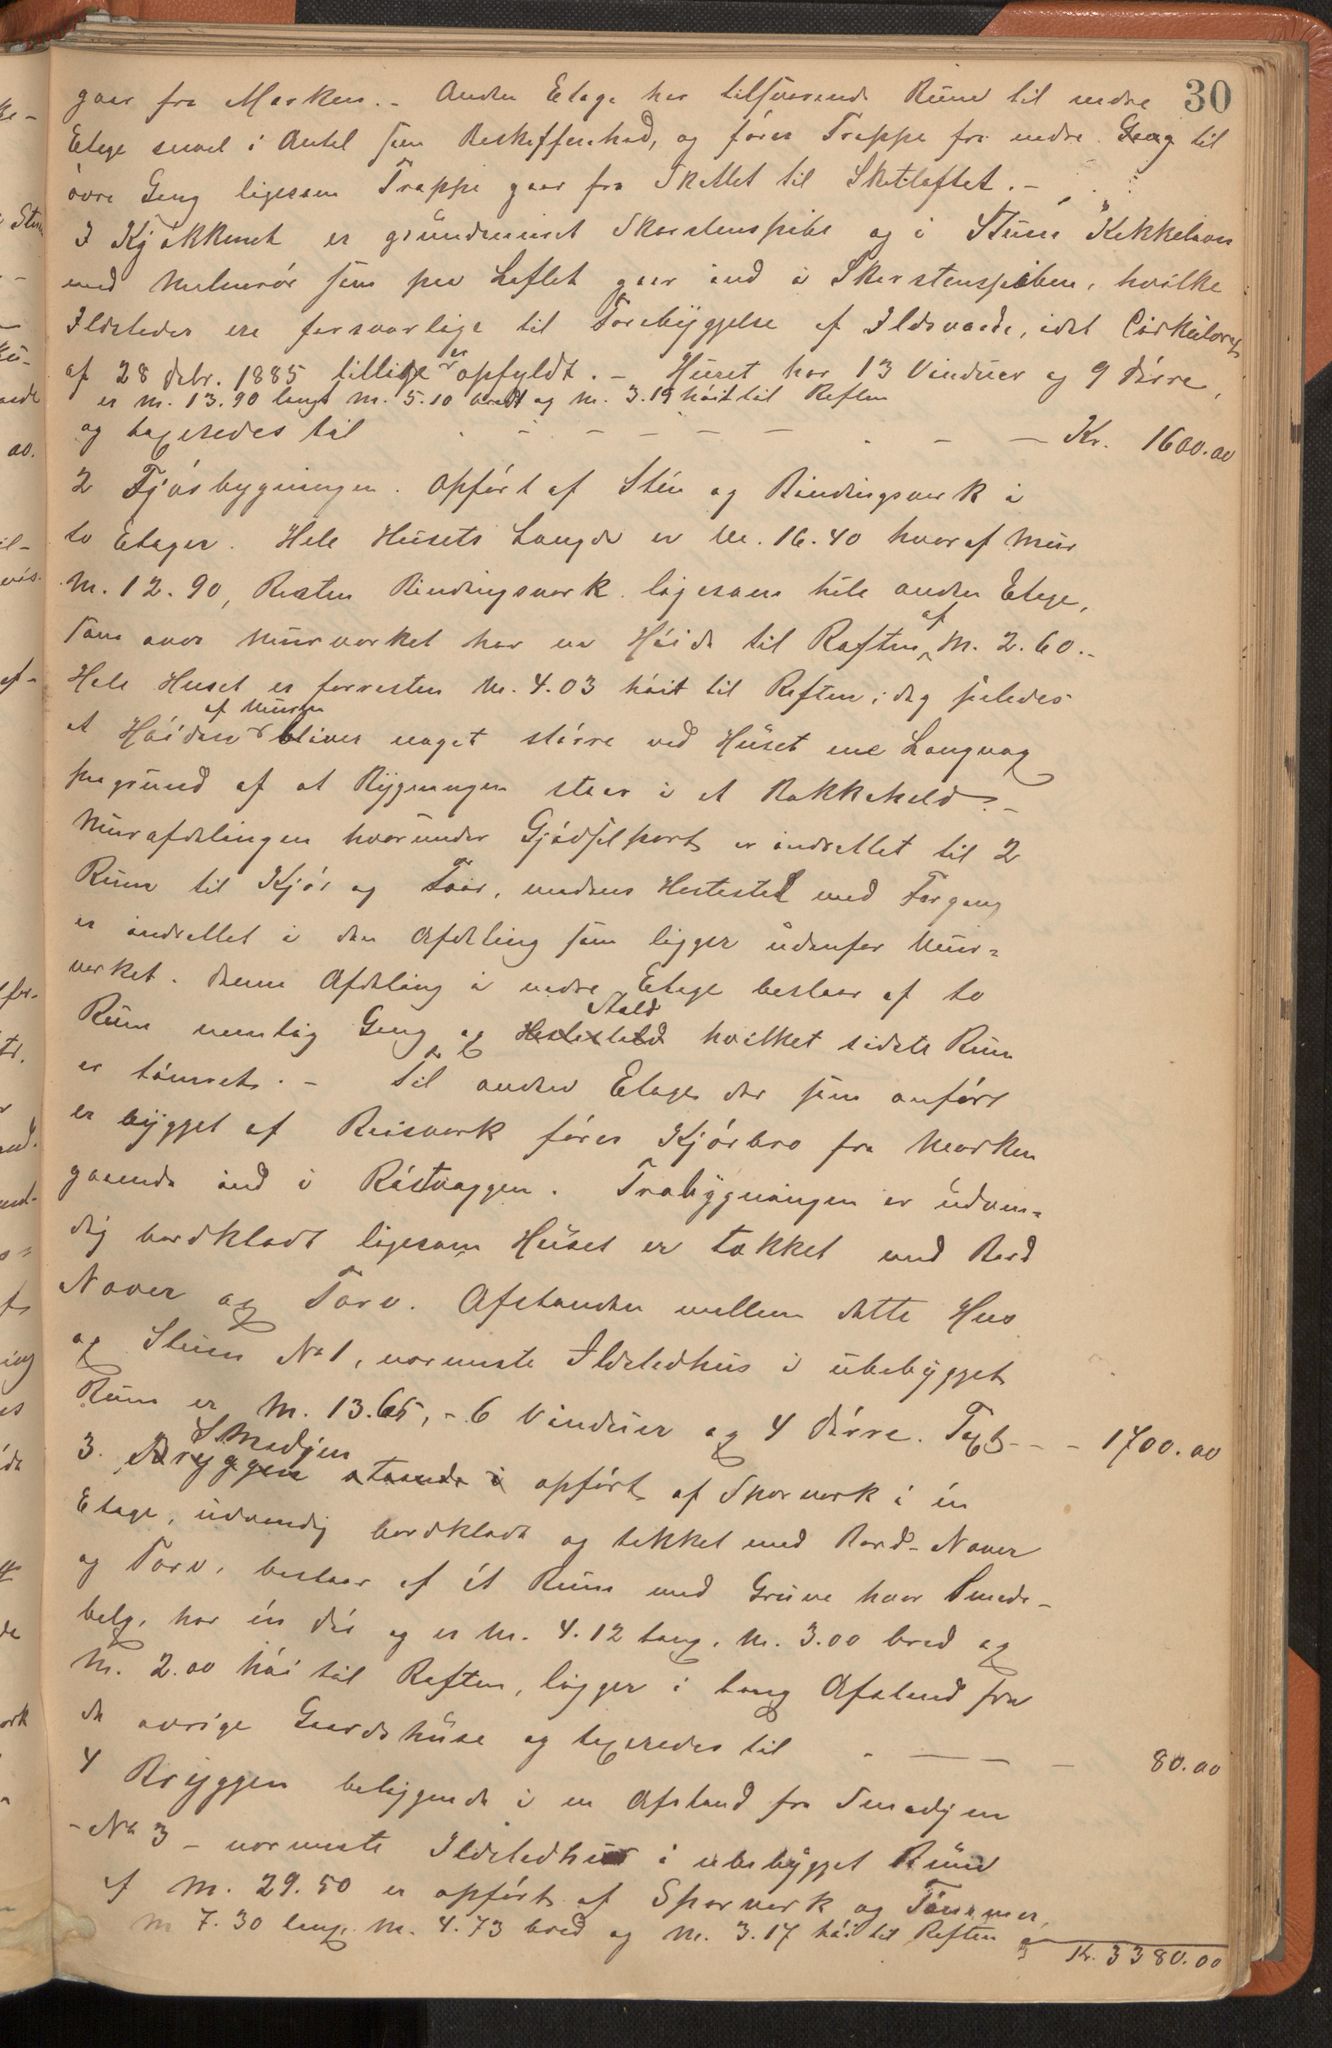 30
gaar fra Marken. - Anden Etage har tilsvarende Rum til nedre
Etage saavel i Antal som Beskaffenhed, og fører Trappe fra nedre Gang til
øvre Gang ligesom Trappe gaar fra Skottet til Skotloftet. -
I Kjøkkenet er grundmuret Skorstenspibe og i Stuen Kakkelovn
med Malmrør som paa Loftet gaar ind i Skorstenspiben, hvilke
Ildsteder ere forsvarlige til Forebyggelse af Ildsvaade, idet Cirkulære
af 28 Debr. 1885 tillige er opfyldt. - Huset har 13 Vinduer og 9 Dørre,
er M. 13.90 langt M. 5.10 bredt og M. 3.19 høit til Raften
og taxeredes til - - - - - - - Kr. 1600.00
2 Fjøsbygningen. Opført af Sten og Bindingsverk i
to Etager. Hele Husets Længde er M. 16.40 hvoraf Mur
M. 12.90, Resten Bindingsverk ligesom hele anden Etage,
som over Murverket har en Høide til Raften af M. 2.60. -
Hele Huset er forresten M. 4.03 høit til Raften, dog saaledes
at Høiden af Muren bliver noget større ved Huset ene Langvæg
paa grund af at Bygningen staar i et Bakkeheld. -
Murafdelingen hvorunder Gjødselport er indrettet til 2
Rum til Kjør og Faar, medens Hestestald med Forgang
er indrettet i den Afdeling som ligger udenfor Mur-
verket. Denne Afdeling i nedre Etage bestaar af to
Rum nemlig Gang og Stald hvilket sidste Rum
er tømret. - Til anden Etage der som anført
er bygget af Reisverk fører Kjørbro fra Marken
gaaende ind i Røstvæggen. Træbygningen er udven-
dig bordklædt ligesom Huset er tækket med Bord
Næver og Torv. Afstanden mellem dette Hus
og Stuen No 1, nærmeste Ildstedhus i ubebygget
Rum er M. 13.65, - 6 Vinduer og 4 Dørre. Taxt - - - 1700.00
3. Smedjen opført af Sparverk i én
Etage, udvendig bordklædt og tækket med Bord- Næver
og Torv, bestaar af ét Rum med Gruve hvor Smede-
belg, har én Dør og er M. 4.12 lang, M. 3.00 bred og
M. 2.00 høi til Raften, ligger i lang Afstand fra
de øvrige Gaardshuse og taxeredes til - - - 80.00
4 Bryggen beliggende i en Afstand fra Smedjen
- No 3 - nærmeste Ildstedhus i ubebygget Rum
af M. 29.50 er opført af Sparverk og Tømmer,
M 7.30 lang, M. 4.73 bred og M. 3.17 høi til Raften og
Kr. 3380.00